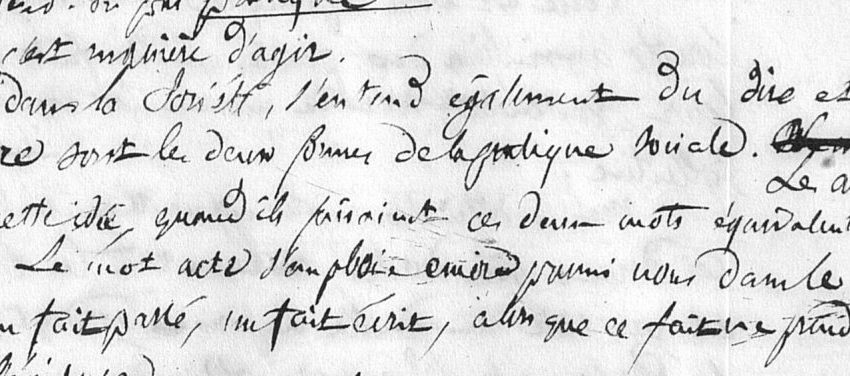 ou par pratique
c'est manière d'agir.
dans la Société, s'entend également du dire et
re sont les deux formes de la pratique sociale.
Le
cette idée, quand ils faisaient ces deux mots équivalent
Le mot acte s'emploie encore parmi nous dans le
fait parlé, un fait écrit, alors que ce fait ne